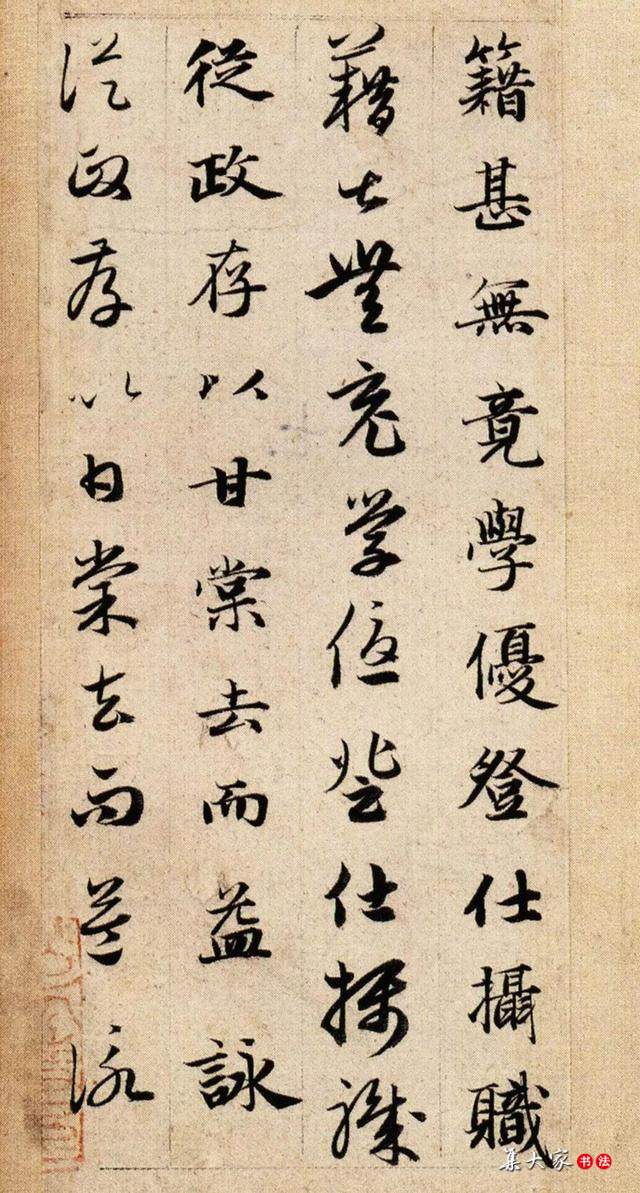 籍甚無竟學優登仕攝職
籍甚無竟學優登仕攝職
從政存以甘棠去而益詠
從政存以甘棠去而益詠
集大家书法